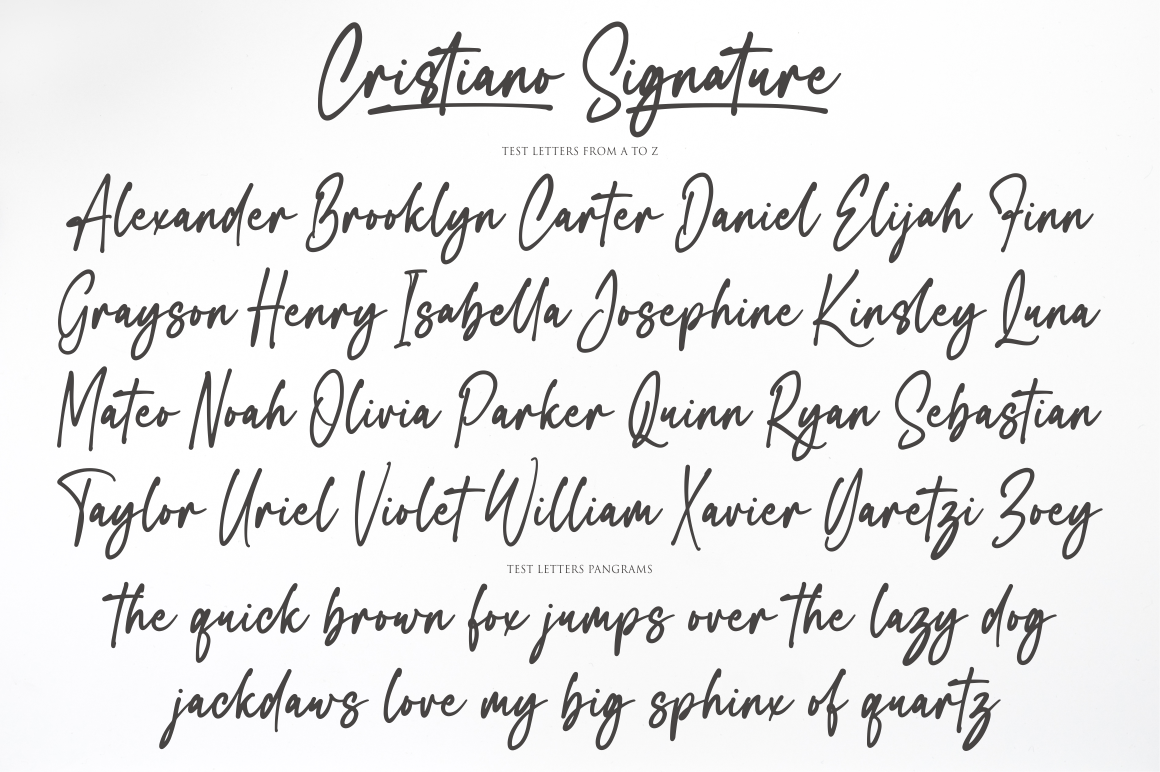 Cristiano Signature
TEST LETTERS FROM A TO Z
Alexander Brooklyn Carter Daniel Elijah Finn
Grayson Henry Isabella Josephine Kinsley Luna
Mateo Noah Olivia Parker Quinn Ryan Sebastian
Taylor Uriel Violet William Xavier Yaretzi Zoey
TEST LETTERS PANGRAMS
the quick brown fox jumps over the lazy dog
jackdaws love my big sphinx of quartz